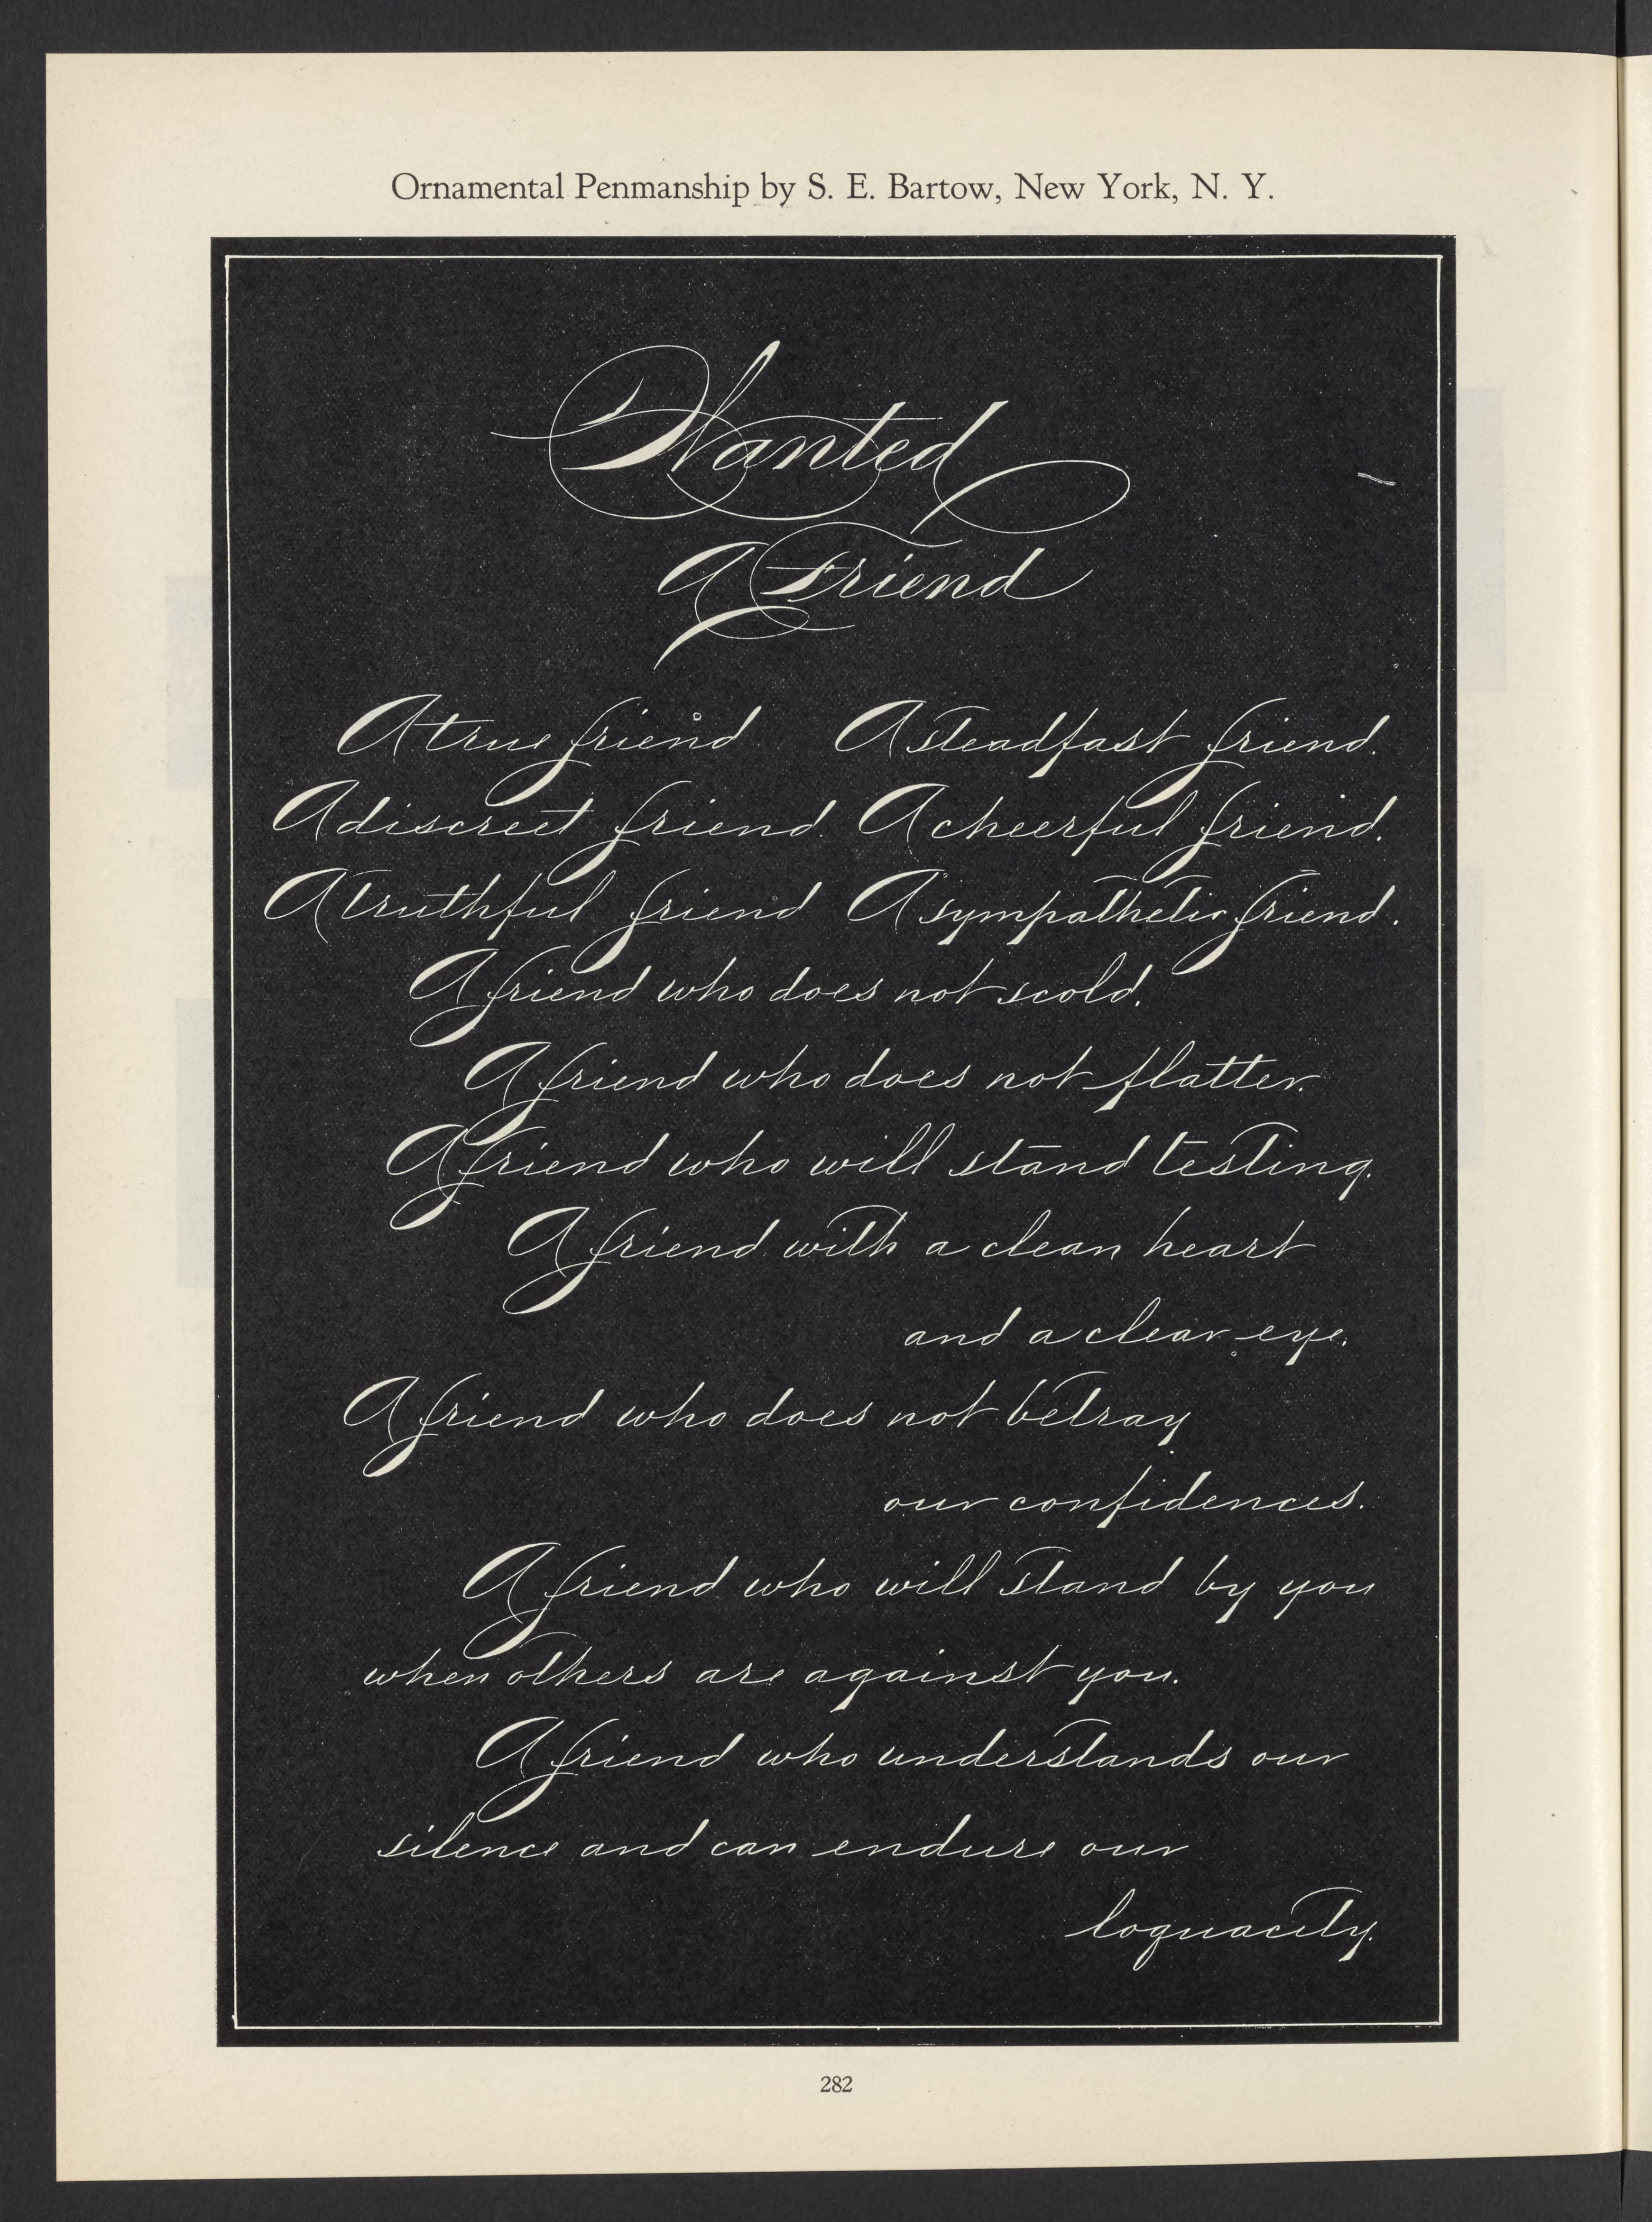 Ornamental Penmanship by S. E. Bartow, New York, N. Y.
Wanted
A Friend
A true friend A steadfast friend.
A discreet friend. A cheerful friend.
A truthful friend A sympathetic friend.
A friend who does not scold.
A friend who does not flatter.
A friend who will stand testing.
A friend with a clean heart
and a clear eye.
A friend who does not betray
our confidences.
A friend who will stand by you
when others are against you.
A friend who understands our
silence and can endure our
loquacity.
282